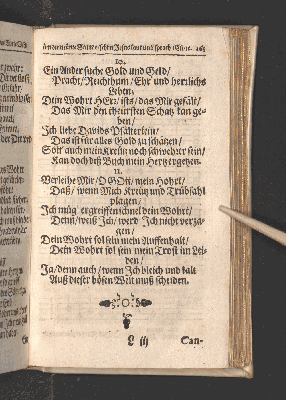 10.
Ein Ander suche Gold und Geld/
Pracht/ Reichthum/ Ehr und herrlichs
Leben.
Dein Wohrt HErr/ ists/ das Mir gefält/
Das Mir den theursten Schatz kan ge-
ben/
Ich liebe Davids Psälterlein/
Das ist für alles Gold zu schätzen/
Solt auch mein Kreütz noch schwehrer sein/
Kan doch diß Buch mein Hertz ergetzen.
11.
Verleihe Mir/ O GOtt/ mein Hohrt/
Daß/ wenn Mich Kreütz und Trübsahl
plagen/
Ich müg' ergreiffen schnel dein Wohrt/
Denn/ weiß Ich/ werd Ich nicht verza-
gen/
Dein Wohrt sol sein mein Auffenhalt/
Dein Wohrt sol sein mein Trost im Lei-
den/
Ja/ denn auch/ wenn Ich bleich und kalt
Auß dieser bösen Welt muß scheiden.
iij
San-